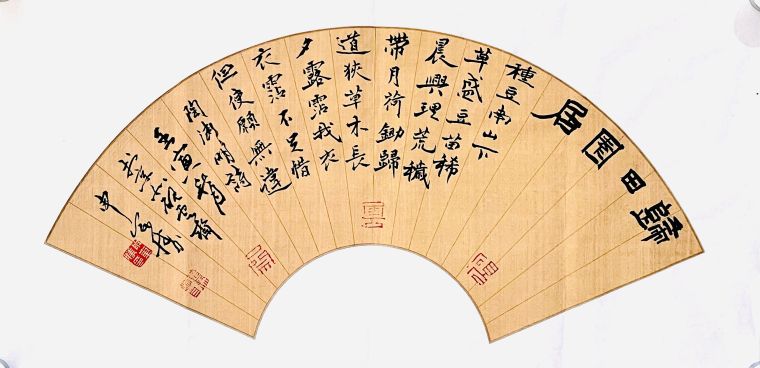 歸田園居
種豆南山下
草盛豆苗稀
晨興理荒穢
帶月荷鋤歸
道狹草木長
夕露霑我衣
衣霑不足惜
但使願無違
陶淵明詩
壬寅
申